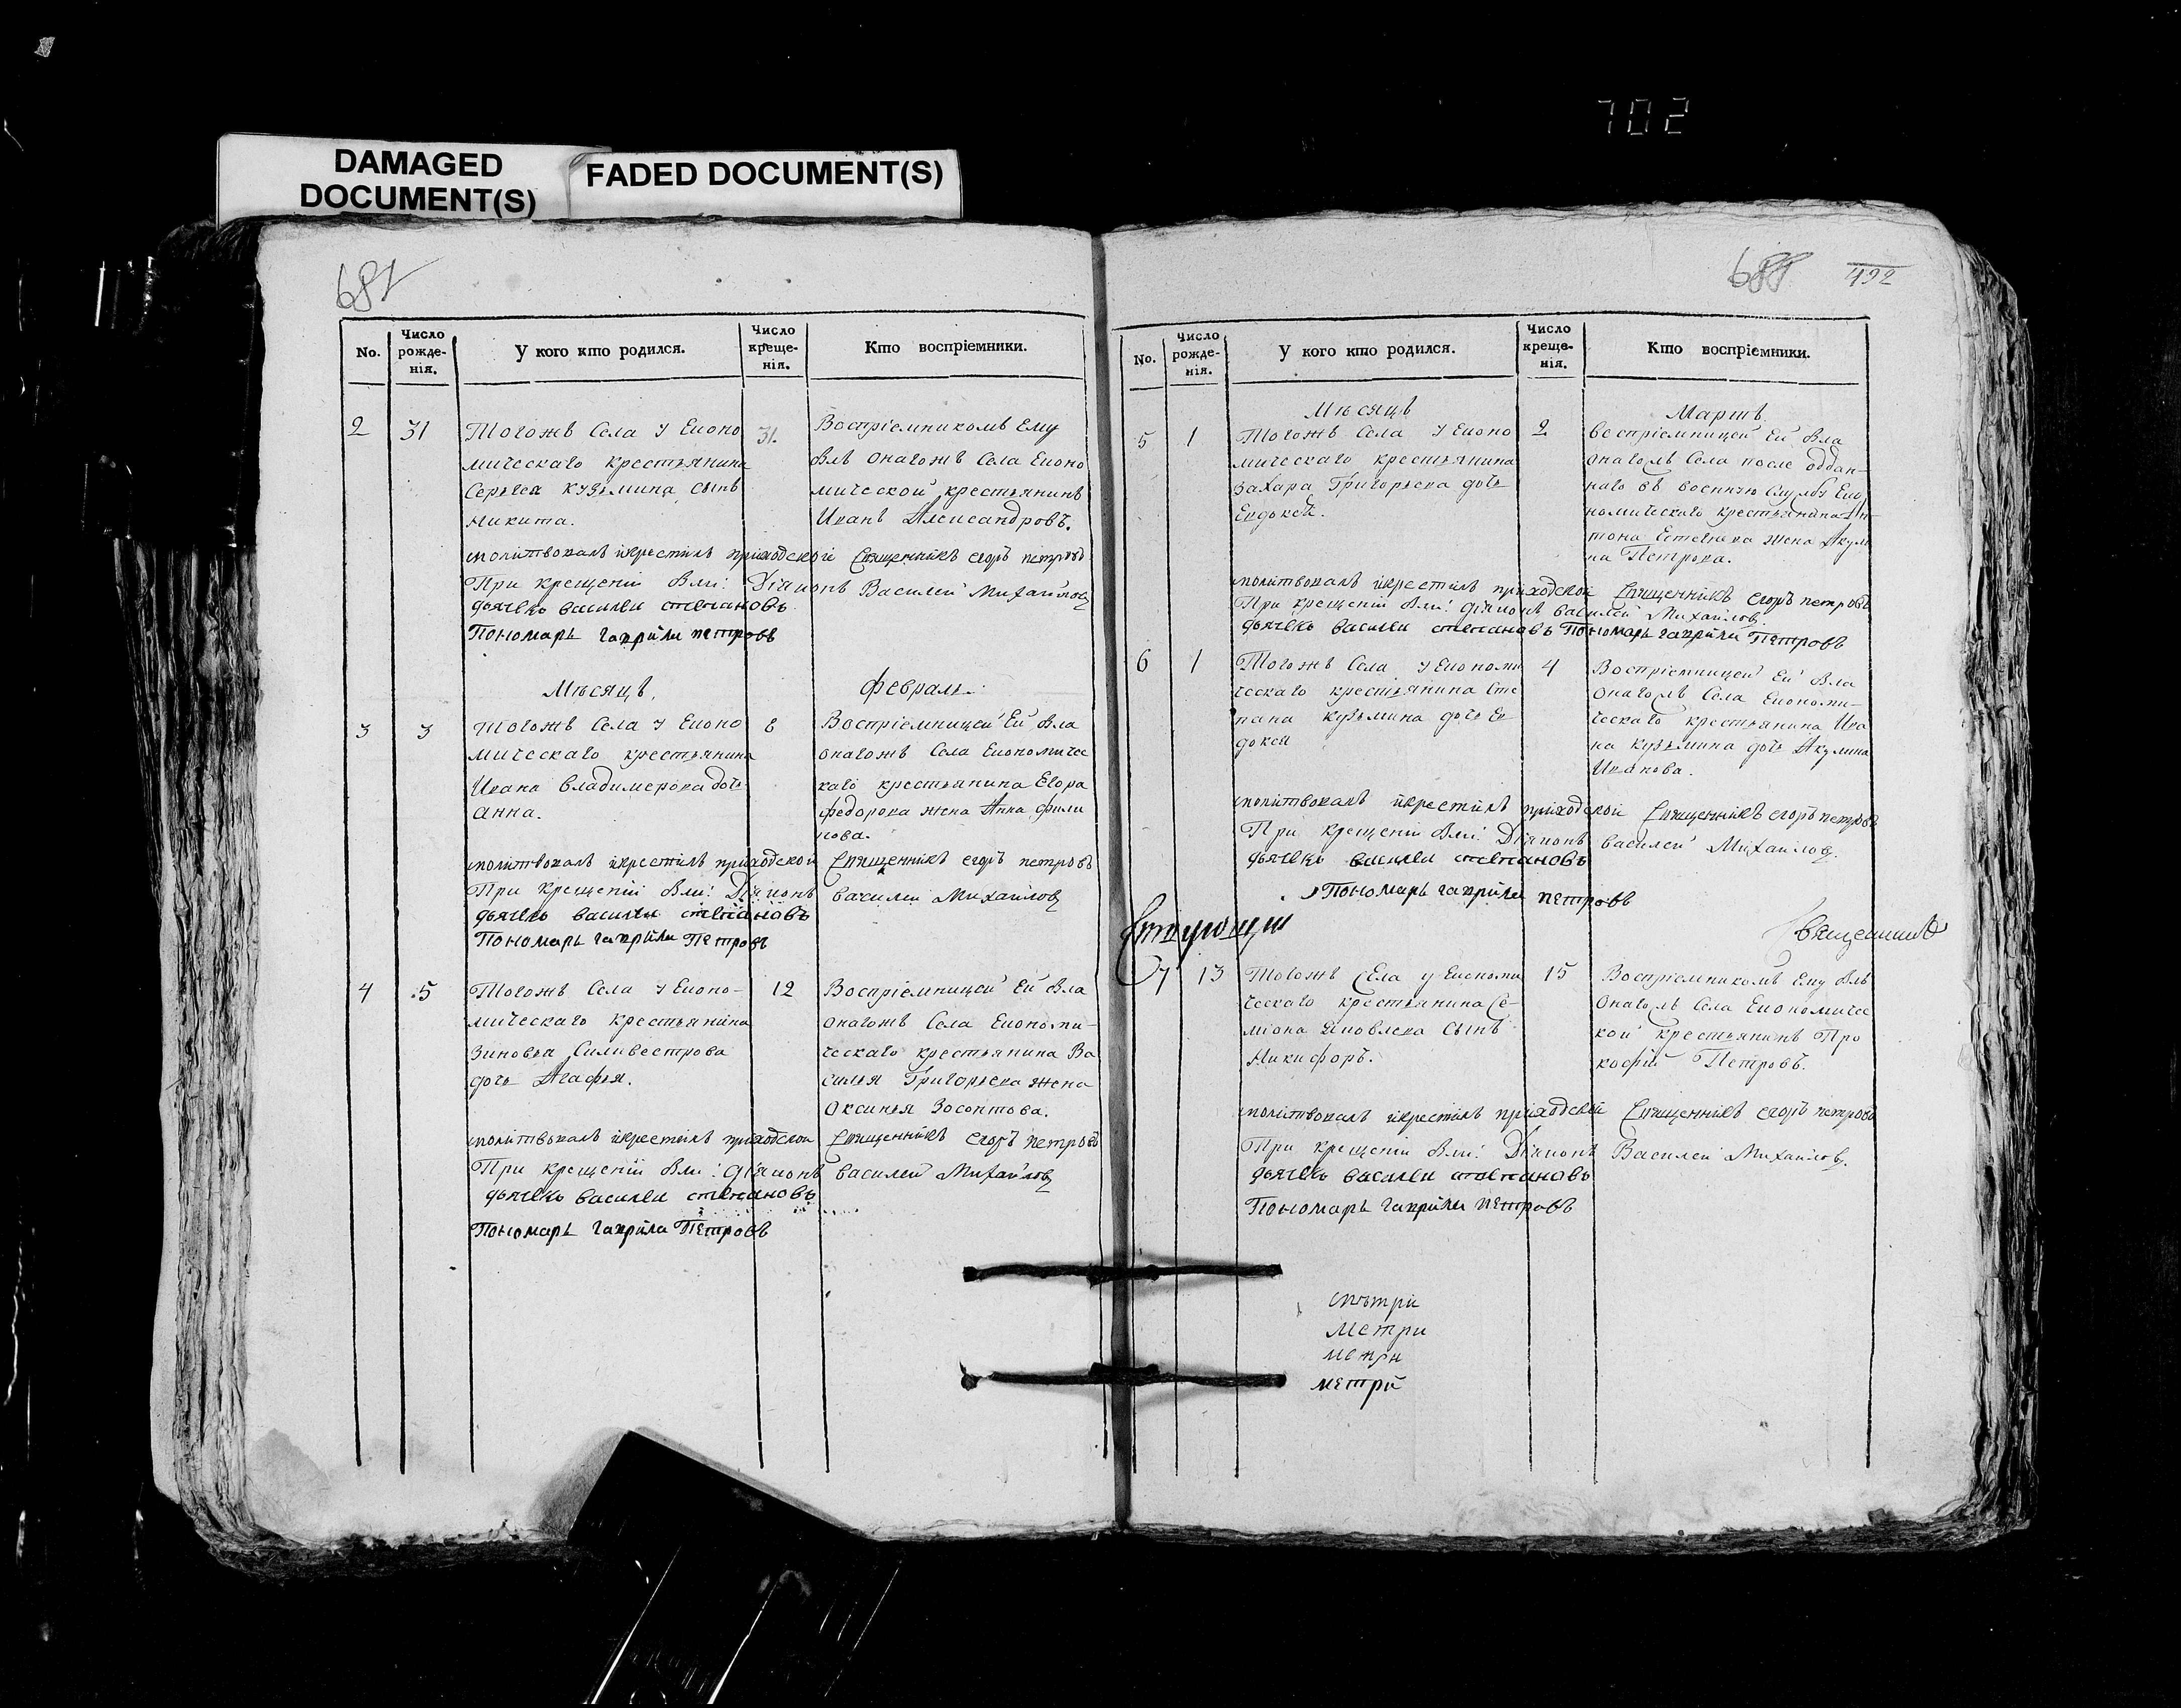 702
DAMAGED
DOCUMENT(S)
FADED DOCUMENT(S)
681
No.
Число
рожде-
нія.
У кого кто родился.
Число
креще-
нія.
Кто воспріемники.
2
31
Тогожъ Села у Еконо
мическаго крестьянина
Сергея кузьмина сынъ
Никита.
31.
Воспріемникомъ Ему
былъ онагожъ Села Еконо
мической крестьянинъ
Иванъ Александровъ.
молитвовалъ икрестилъ приходской Священникъ егоръ петровъ
При крещеніи были: Діаконъ Василей Михайловъ
дьячекъ василеи степановъ
Пономарь гаврила петровъ
Мѣсяцъ,
февраль.
3
3
Тогожъ Села у Еконо
мическаго крестьянина
Ивана владимерова дочь
Анна.
6
Воспріемницей Ей была
онагожъ Села Економичес
каго крестьянина Егора
федорова жена Анна фили
пова.
молитвовалъ икрестилъ приходской Священникъ егоръ петровъ
При крещеніи были: Діаконъ василеи Михайловъ
дьячекъ василеи степановъ
Пономарь гаврила Петровъ
4
5
Тогожъ Села у Еконо-
мическаго крестьянина
Зиновья Силивестрова
дочь Агафья.
12
Воспріемницей Ей была
онагожъ Села Економи-
ческаго крестьянина Ва
силья Григорьева жена
Оксинья
молитвовалъ икрестилъ приходской Священникъ егоръ петровъ
При крещеніи были: діаконъ василей Михайловъ
дьячекъ василеи степановъ
Пономарь гаврила Петровъ
688
492
No.
Число
рожде-
нія.
У кого кто родился.
Число
креще-
нія.
Кто воспріемники.
Мѣсяцъ
Мартъ
5
1
Тогожъ Села у Еконо
мическаго крестьянина
Захара Григорьева дочь
Евдокея.
2
воспріемницей Ей была
онагожъ Села после оддан-
наго въ военную службу Еко
номическаго крестьянина Ан-
тона жена Акули
на Петрова.
молитвовалъ икрестилъ приходской Священникъ егоръ петровъ
При крещеніи были: діаконъ василей Михайловъ.
дьячекъ василеи степановъ Пономарь гаврила Петровъ
6
1
Тогожъ Села у Економи
ческаго крестьянина Сте
пана кузьмина дочь Ев
докея
4
Воспріемницей Ей была
онагожъ Села Економи-
ческаго крестьянина Ива
на кузьмина дочь Акулина
Иванова.
молитвовалъ икрестилъ приходской Священникъ егоръ петровъ
При крещеніи были: Діаконъ василей Михайловъ.
дьячекъ василеи степановъ
Пономарь гаврила петровъ
7
13
Тогожъ Села у Економи
ческаго крестьянина Се-
міона Яковлева сынъ
Никифоръ.
15
Воспріемникомъ Ему былъ
Онагожъ Села Економичес
кой крестьянинъ Про
кофій Петровъ.
молитвовалъ икрестилъ приходской Священникъ егоръ петровъ
При крещеніи были: Діаконъ Василеи Михайловъ.
дьячекъ василеи степановъ
Пономарь гаврила петровъ
Метри
метри
метрй